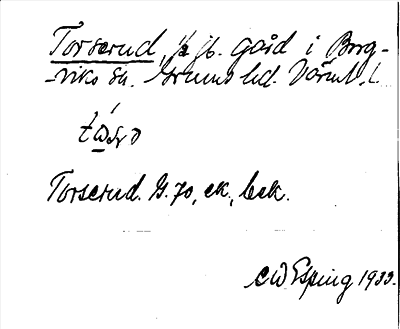 Torserud, ½ jb. gård i Borg-
-viks sn. Grums hd. Värml. l.
Torserud. G. 70, ek., bek.
C W Esping 1933.